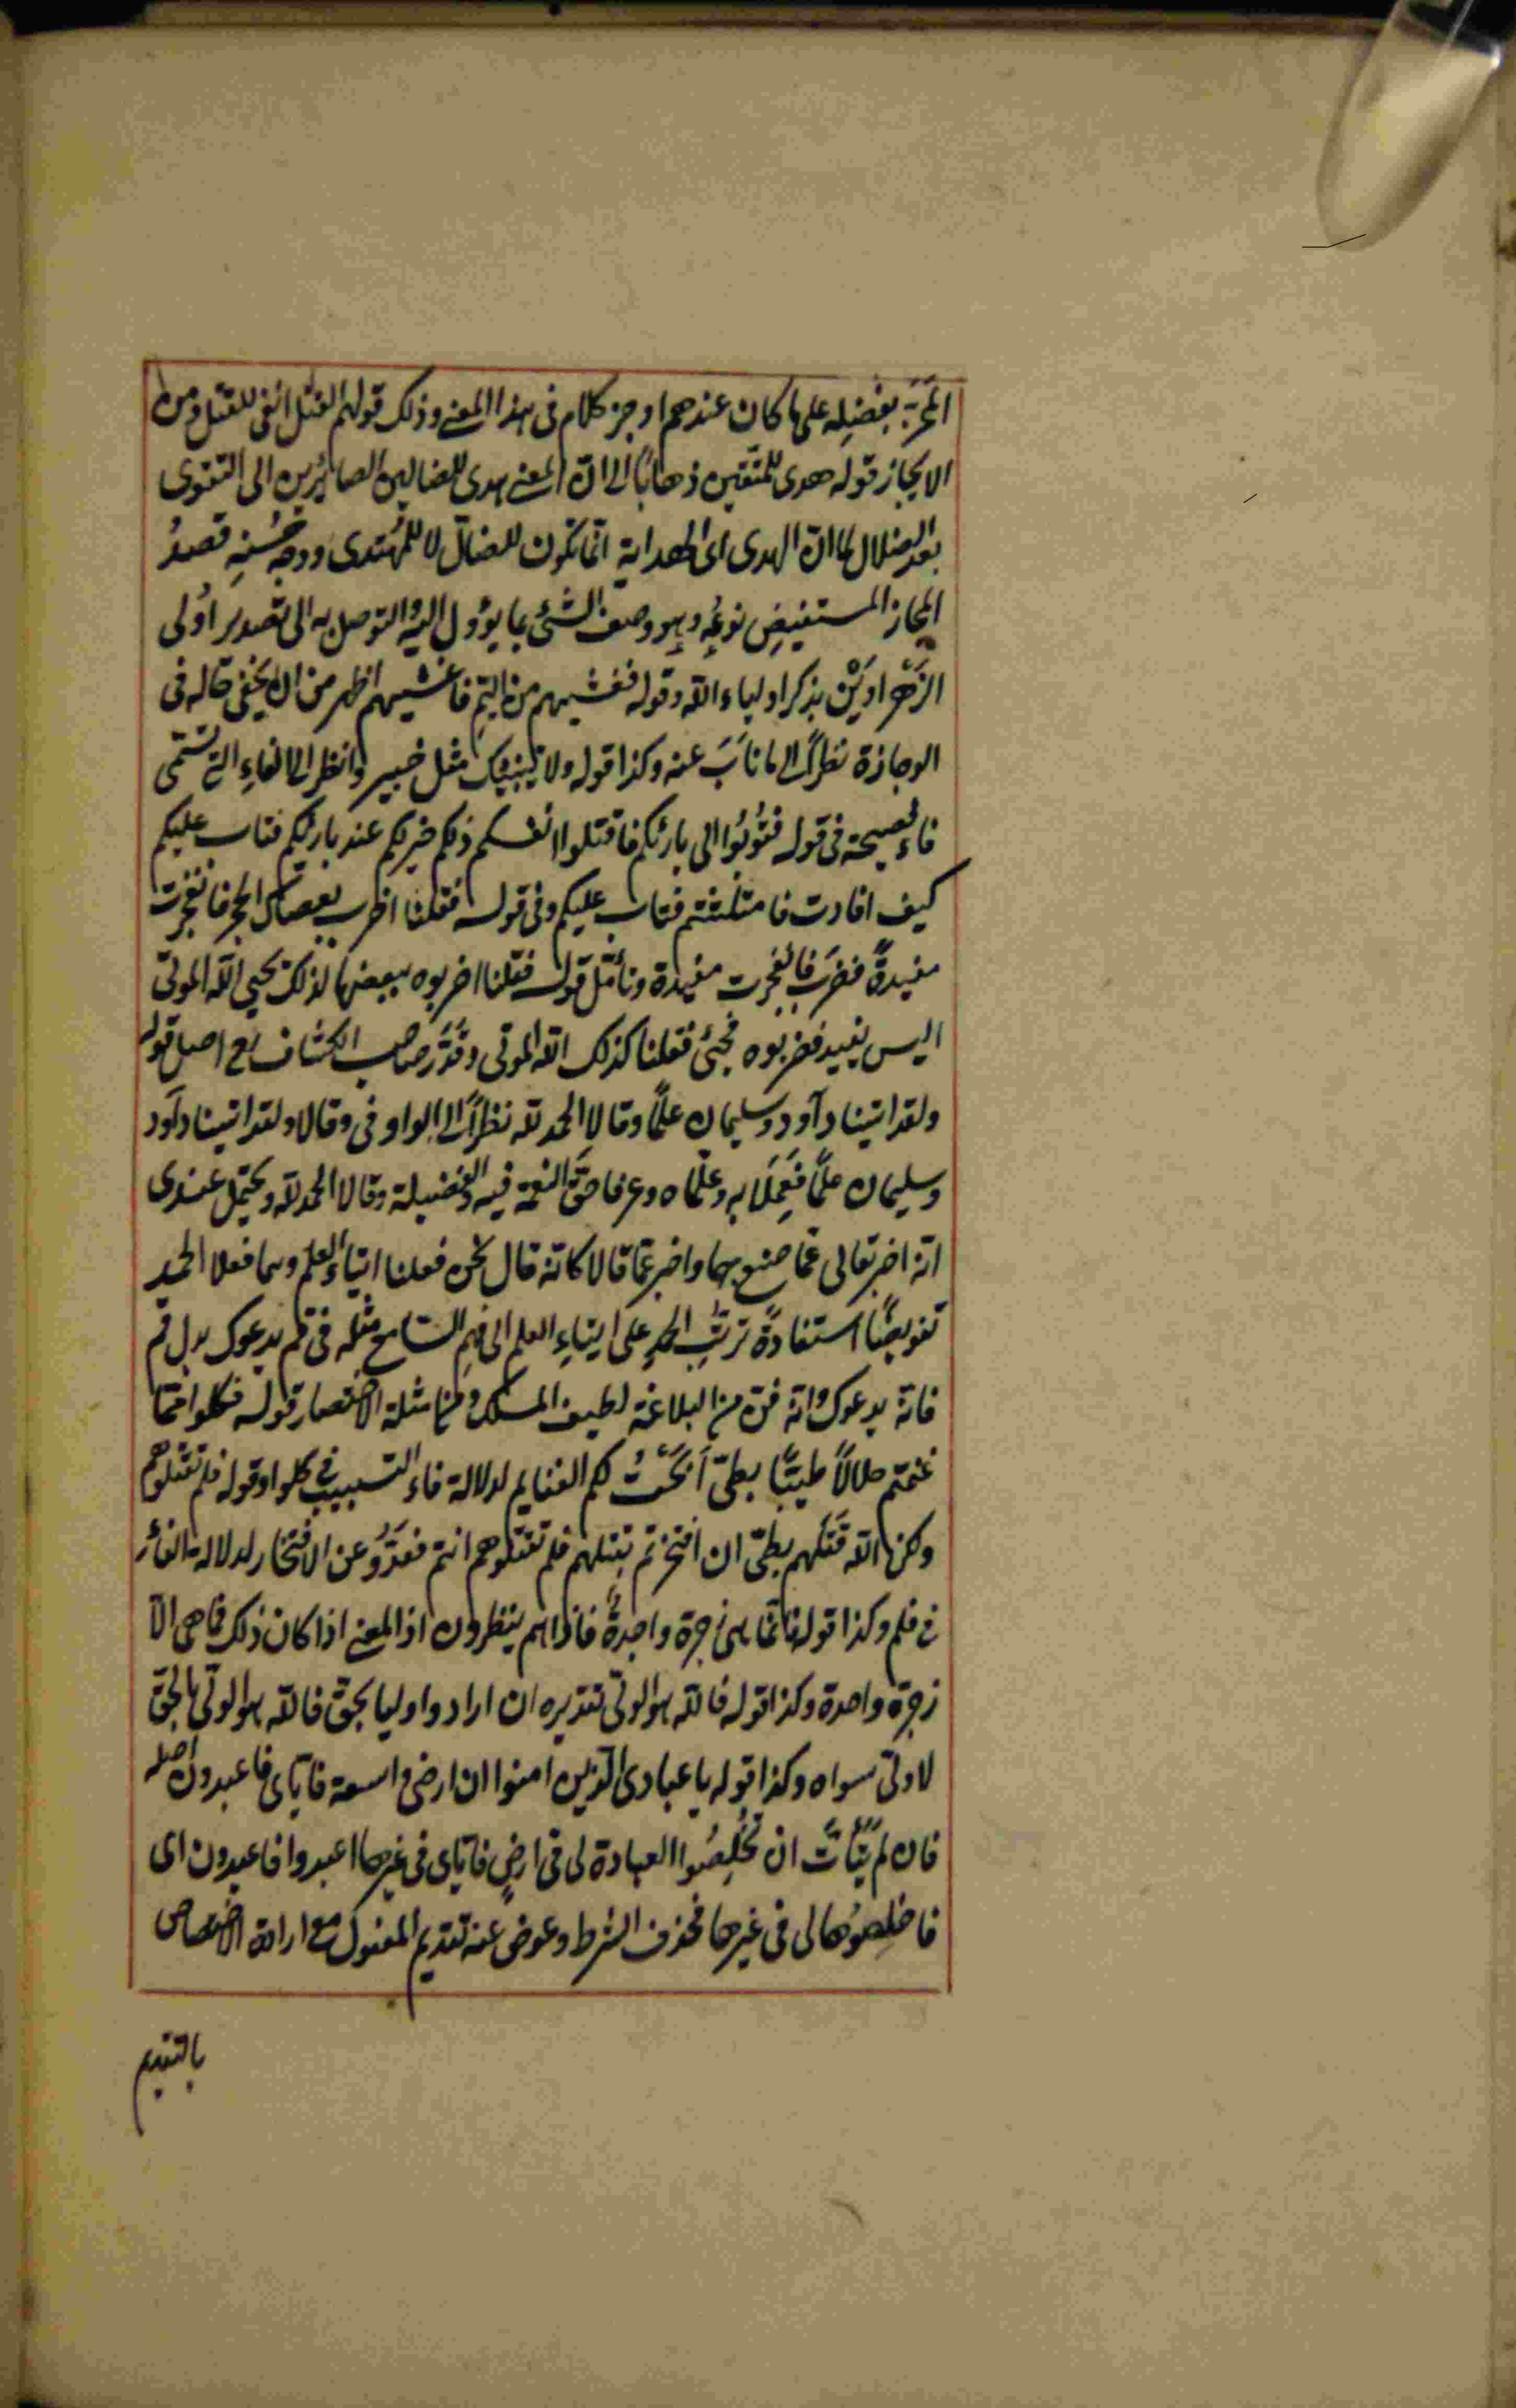 المزيّة بفضلِه على ما كان عندهم اوجز كلام فى هذا المعنى وذلك قولهم القتل انفى للقتل ومن
الايجاز قوله هدى للمتّقين ذهابًا الى انّ المعنى هدى للضالين الصائرين الى التقوى
بعد الضلال لما ان الهدى اى الهداية انّما تكون للضالّ لا للمهتدى ووجه حُسنِه قصدُ
المجاز المستفيضِ نوعُه وهو وصف الشئ بما يؤول اليه والتوصل به الى تصدير اُولى
الزَّهْراوَيْن بذكر اولياء الله وقوله فغشيهم من اليمّ ما غشيهم اظهر من ان يخفى حاله فى
الوجازة نظرًا الى ما نابَ عنه وكذا قوله ولا ينبئك مثل خبير وانظر الى الفاءِ التى تسمّى
فاء فصيحة فى قوله فتوبُوا الى بارئكم فاقتلوا انفسكم ذلكم خير لكم عند بارئكم فتاب عليكم
كيف افادت فامتثلتم فتاب عليكم وفى قوله فقلنا اضرب بعصاك الحجر فانفجرت
مفيدةً فضرب فانفجرت مفيدة وتأمّل قوله فقلنا اضربوه ببعضها كذلك يحيى الله الموتى
اليس يفيد فضربوه فحيئ فقلنا كذلك الله الموتى وقدّر صاحب الكشاف رح اصل قوله
ولقد اتينا داود وسليمان علمًا وقالا الحمد لله نظرًا الى الواو فى وقالا ولقد اتينا داود
وسليمان علمًا فعَمِلَا به وعلّماه وعرفا حقَّ النعمة فيه والفضيلة وقالا الحمد لله ويحتمل عندى
انّه اخبر تعالى عمّا صنع بهما واخبر عمّا قالا كانّه قال نحن فعلنا ايتاء العلم وهما فعلا الحمد
تفويضًا استفادةَ ترتّبِ الحمدِ على ايتاءِ العلم الى فهم السّامع مثله فى قم يدعوك بدل قم
فانّه يدعوك وانّه فنّ من البلاغة لطيف المسلك ومن امثلة الاختصار قوله فكلوا ممّا
غنمتم حلالًا طيبًا بطىّ اَبَحْتُ لكم الغنايم لدلالة فاء التسبيب فى فكلوا وقوله فلم تقتلوهم
ولكنّ الله قتلهم بطىّ ان افتخرتم بقتلهم فلم تقتلوهم انتم فعدّوا عن الافتخار لدلالة الفاء
فى فلم وكذا قوله فانّما هى زجرة واحدةٌ فاذا هم ينظرون اذ المعنى اذا كان ذلك فما هى الّا
زجرة واحدة وكذا قوله فالله هو الولىّ تقديره ان ارادوا وليا بحقّ فالله هو الولىّ بالحقّ
لا ولىّ سواه وكذا قوله يا عبادى الّذين امنوا ان ارضى واسعة فايّاى فاعبدون اصله
فان لم يتأتَّ ان تُخلِصُوا العبادة لى فى ارضٍ فايّاى فى غيرها اعبدوا فاعبدون اى
فاخلِصُوها لى فى غيرها فحذف الشرط وعوض عنه تقديم المفعول مع ارادة الاختصاص
بالتقديم